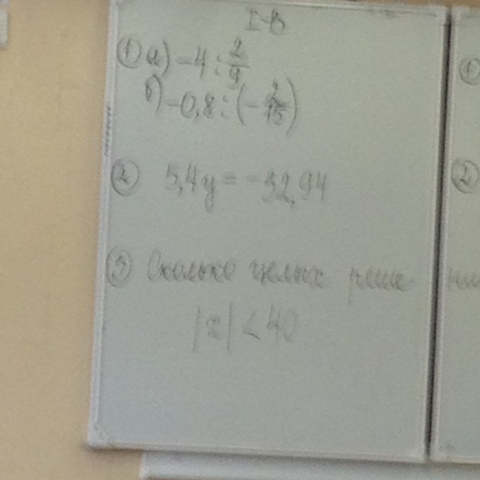 I-В
① а) -4 : 2/9
б) -0,8 : (- 2/15)
② 5,4y = -32,94
③ Сколько целых реше-
|x| < 40
①
②